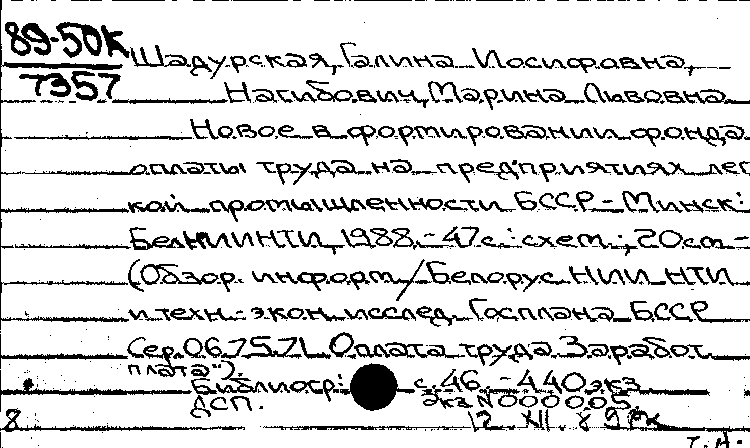 89-50К
7357
Шадурская, Галина Иосифовна,
Нагибович, Марина Львовна
Новое в формировании фонда
оплаты труда на предприятиях лег
кой промышленности БССР - Минск:
БелНИИНТИ, 1988. - 47 с.: схем.; 20 см -
(Обзор. информ / Белорус НИИ НТИ
и техн.-экон. исслед. Госплана БССР
Сер. 06.75.71. Оплата труда. Заработ.
плата").
Библиогр.: с. 46. - 440 экз
ДСП.
Экз N 000005
12. XII. 89
8
Т. Н.